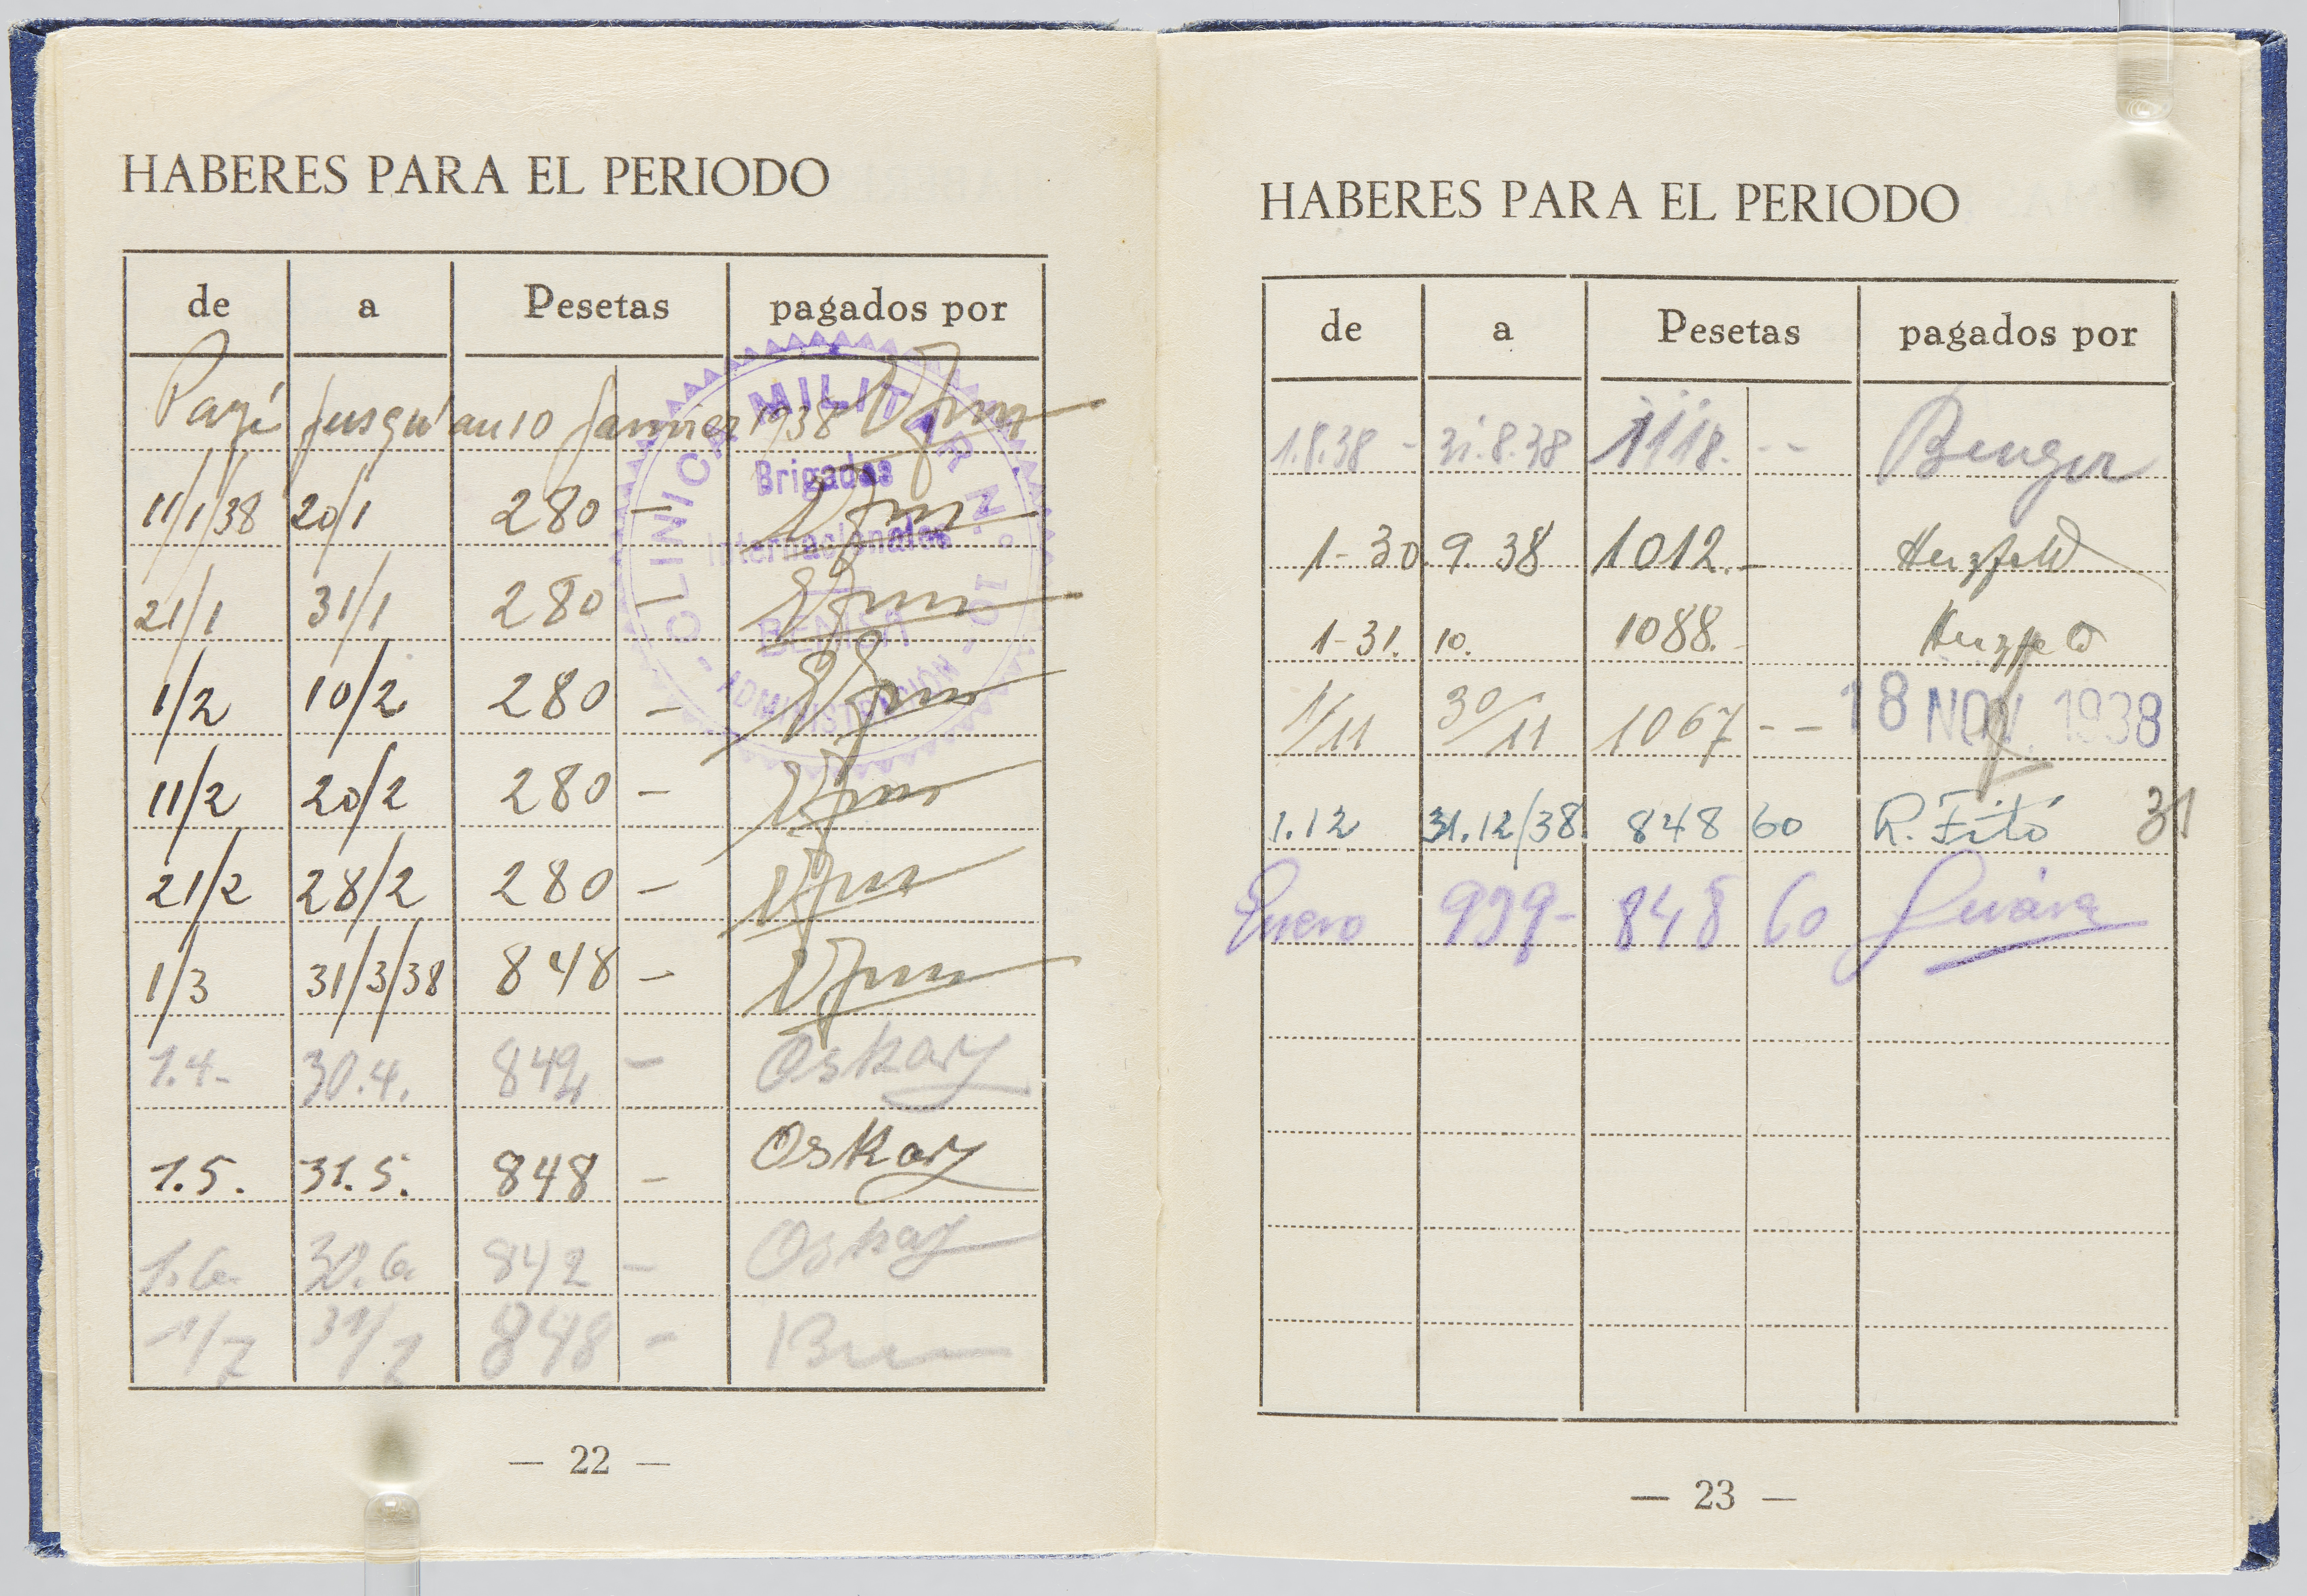 HABERES PARA EL PERIODO
de a Pesetas pagados por
Payé jusqu'au 10 Janvier 1938
CLINICA MILITAR N.º 10
Brigadas
Internacionales
BENISA
- ADMINISTRACIÓN -
11/1/38 20/1 280 —
21/1 31/1 280 —
1/2 10/2 280 —
11/2 20/2 280 —
21/2 28/2 280 —
1/3 31/3/38 848 —
1.4- 30.4. 842 — Oskar
1.5. 31.5. 848 — Oskar
1.6. 30.6. 842 — Oskar
1/7 31/7 848 —
— 22 —
HABERES PARA EL PERIODO
de a Pesetas pagados por
1.8.38 - 31.8.38 1118. --
1-30. 9.38 1012.- Herzfeld
1-31. 10. 1088.- Herzfeld
1/11 30/11 1067 -- 18 NOV. 1938
1.12 31.12/38 848 60 R. Fitó 31
Enero 939- 848 60
— 23 —